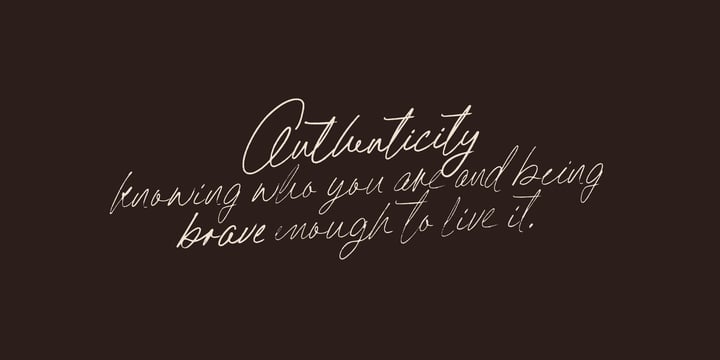 Authenticity
knowing who you are and being
brave enough to live it.